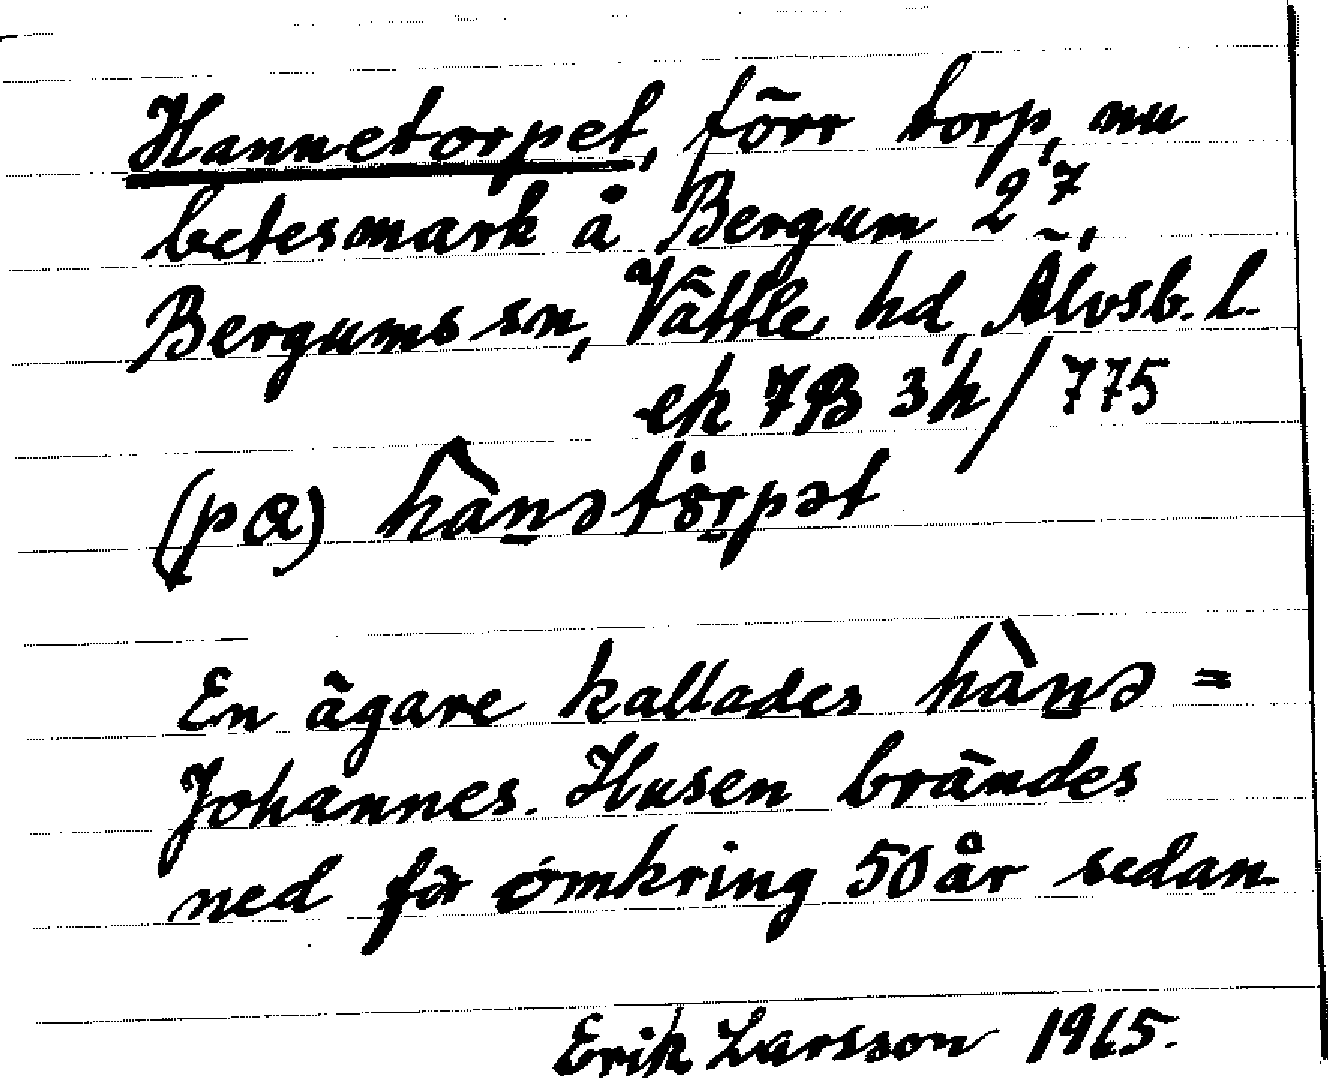 Hannetorpet, förr torp, nu
betesmark å Bergum 2⁷,
Bergums sn, Vättle hd, Älvsb. l.
ek 7B 3h/775
(pɑ) hàn̲ətȯ̀r̲pət
En ägare kallades hàn̲ə =
Johannes. Husen brändes
ned för omkring 50 år sedan.
Erik Larsson 1965.